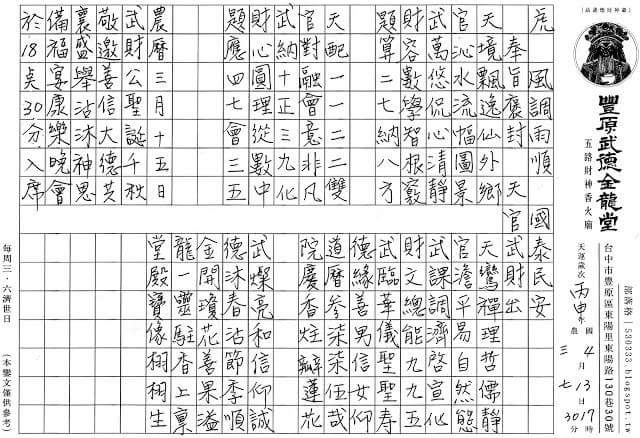 虎
風調雨順
國泰民安
奉旨褒封
天官武財出
天境飄逸仙外鄉
官沁水流幅圖景
武萬悠侃心清靜
財容數學智根竅
題算二一納八方
天配一一二二雙
官對融會意非凡
武納十正三九化
財心圓理從數中
題應四七會三五
農曆三月十五日
武財公聖誕千秋
敬邀善信大德共
襄盛舉沾沐神恩
備福宴康樂晚會
於18点30分入席
天鸞禪理哲儒靜
官澹平易自然態
武課調啓宣化
財文總能九九五
武臨華聖壽
德緣善男信女仰
道曆參柒柒伍哉
院慶香炷瓣蓮花
武燦亮和信仰誠
德沐春沾節季順
金開瓊花善果溢
龍一靈駐香上稟
堂殿寶像栩栩生
豐原武德金龍堂
五路財神香火廟
台中市豐原區東陽里東陽路130巷30號
部落格:530333.blogspot.tw
天運歲次 丙申年
國 4月13日17時
農 三月七日30分
每周三.六濟世日
(本鸞文僅供參考)